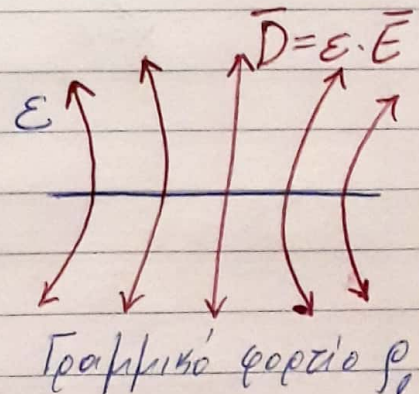 D̅ = ε · E̅
ε
Γραμμικό φορτίο ρℓ